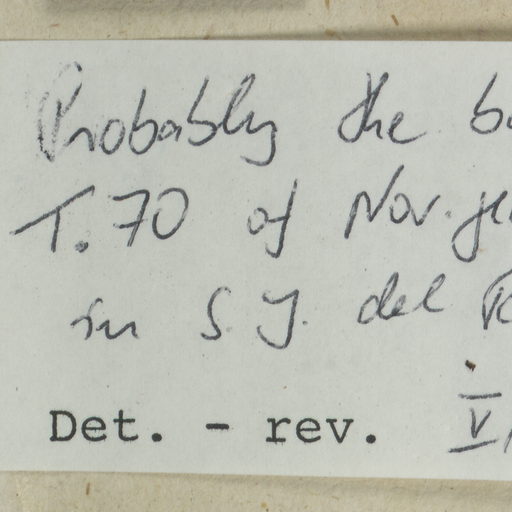 Probably the
T.70 of Nov.
in S.J. del
Det. - rev. V